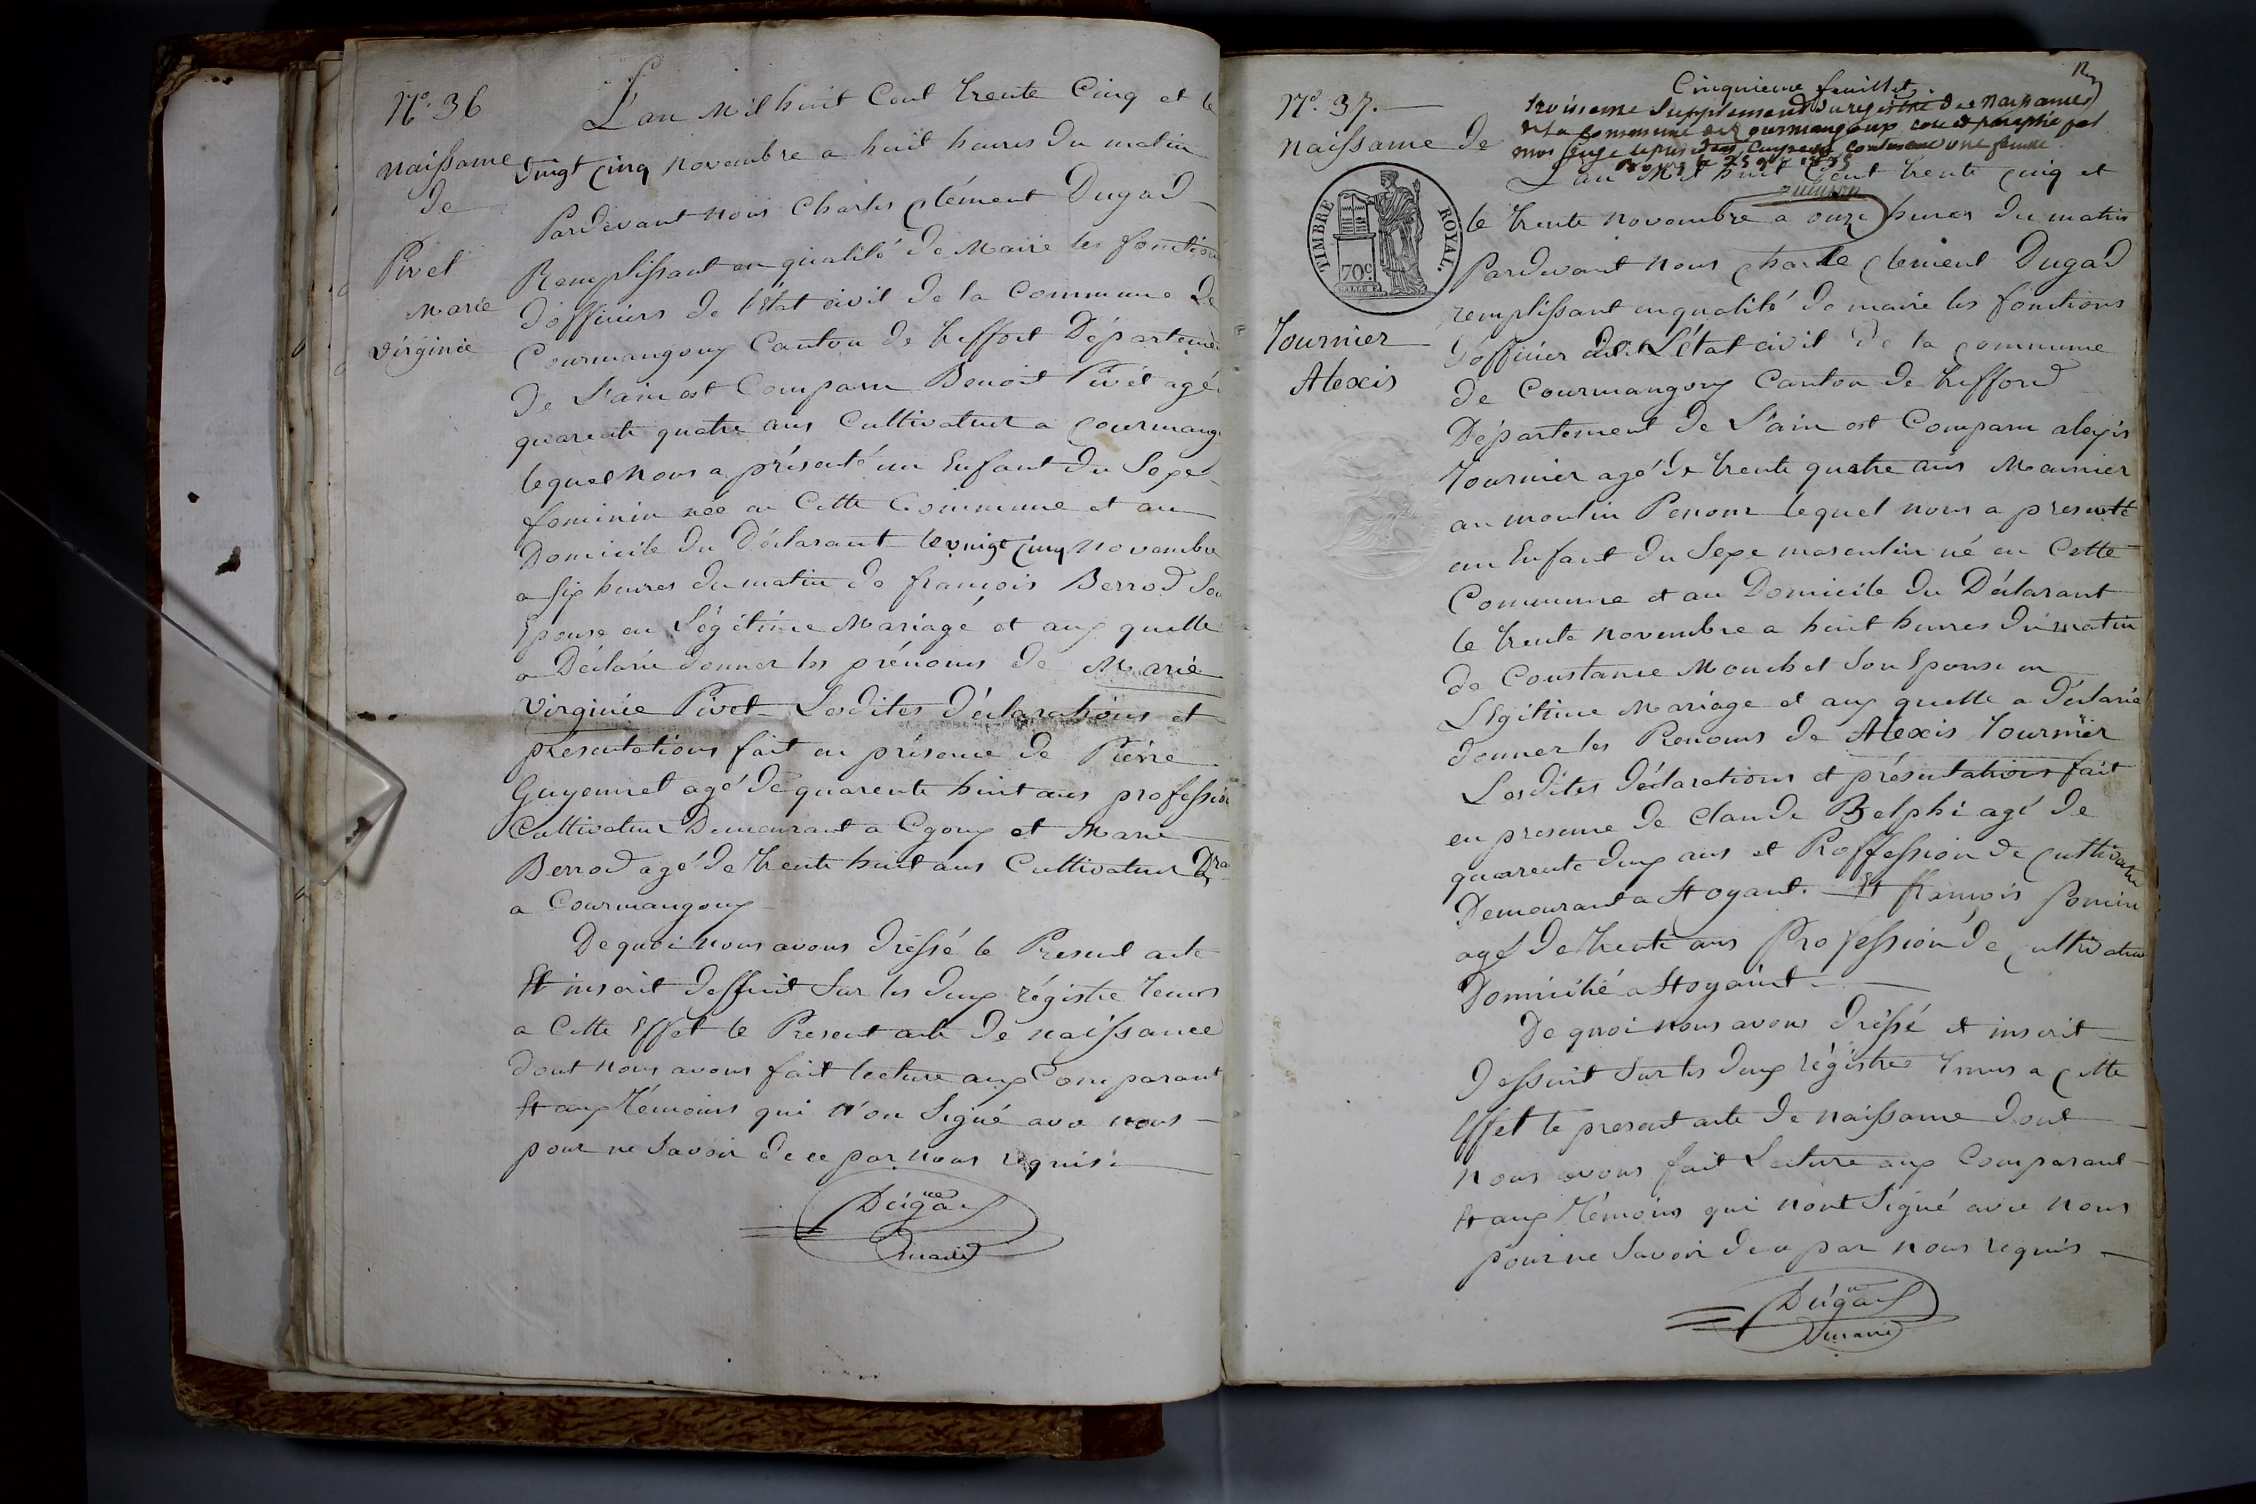 N.º 36
Naissame
de
Pivet
Marie
Virginie
L'an Mil huit Cent trente Cinq et le
Vingt Cinq novembre a huit heures du matin
Pardevant nous Charles Clément Dugad
Remplissant en qualité de Maire les fonctions
d'officiers de l'état civil de la Commune de
Courmangoux Canton de treffort Départeme
de L'ain est Comparu Benoit Pivet agé
quarente quatre ans Cultivateur a Courmang
lequel nous a présenté un Enfant du Sexe
feminin née en Cette Commune et au
Domicile du Déclarant le vingt Cinq novembre
a six heures du matin de françois Berrod Son
Epouse en Légitime Mariage et aux quelle
a Déclaré donner les prénoms de Marie
Virginie Pivet Lesdites déclarations et
présentations fait en présence de Piérre
Guyennet agé de quarente huit ans profession
Cultivateur Demeurant a Cgoux et Marie
Berrod agé de trente huit ans Cultivateur
a Courmangoux
De quoi nous avons dréssé le Present acte
Et inscrit desuit Sur les deux régistre tenus
a Cette Effet le Present acte de naissance
dont nous avons fait lecture aux Comparant
Et aux témoins qui n'on Signé avec nous
pour ne Savoir de ce par nous requis
Dugad
maire
Cinquieme feuillet
N.º 37.
Naissame de
troisieme Supplement du registre des naissances
de la Commune de Courmangoux coté et paraphé par
nous juge contenant une feuille
Bourg le 25 9bre 1835
TIMBRE ROYAL.
70c
Tournier
Alexis
L'an Mil huit Cent trente Cinq et
le trente novembre a onze heures du matin
Pardevant nous Charle Clement Dugad
remplissant en qualité de maire les fonctions
d'officier de L'état civil de la Commune
de Courmangoux Canton de trefford
Département de L'ain est Comparu alexis
Tournier agé de trente quatre ans Meunier
au moulin Penour lequel nous a presenté
un Enfant du Sexe masculin né en Cette
Commune et au Domicile du Déclarant
le trente novembre a huit heures du matin
de Constance Mouchet Son Epouse en
Légitime Mariage et aux quelle a déclaré
donner les Prenoms de Alexis Tournier
Lesdites déclarations et présentations fait
en presence de Claude Belphi agé de
quarente deux ans et Proffession de Cultivateur
Demeurant a Roissiat. Et françois
agé de trente ans Profession de Cultivateur
Domicilié a
De quoi nous avons dréssé et inscrit
desuit Sur les deux régistres tenus a Cette
Effet le present acte de naissame dont
nous avons fait Lecture aux Comparant
Et aux témoins qui n'ont Signé avec nous
pour ne Savoir de ce par nous requis
Dugad
maire